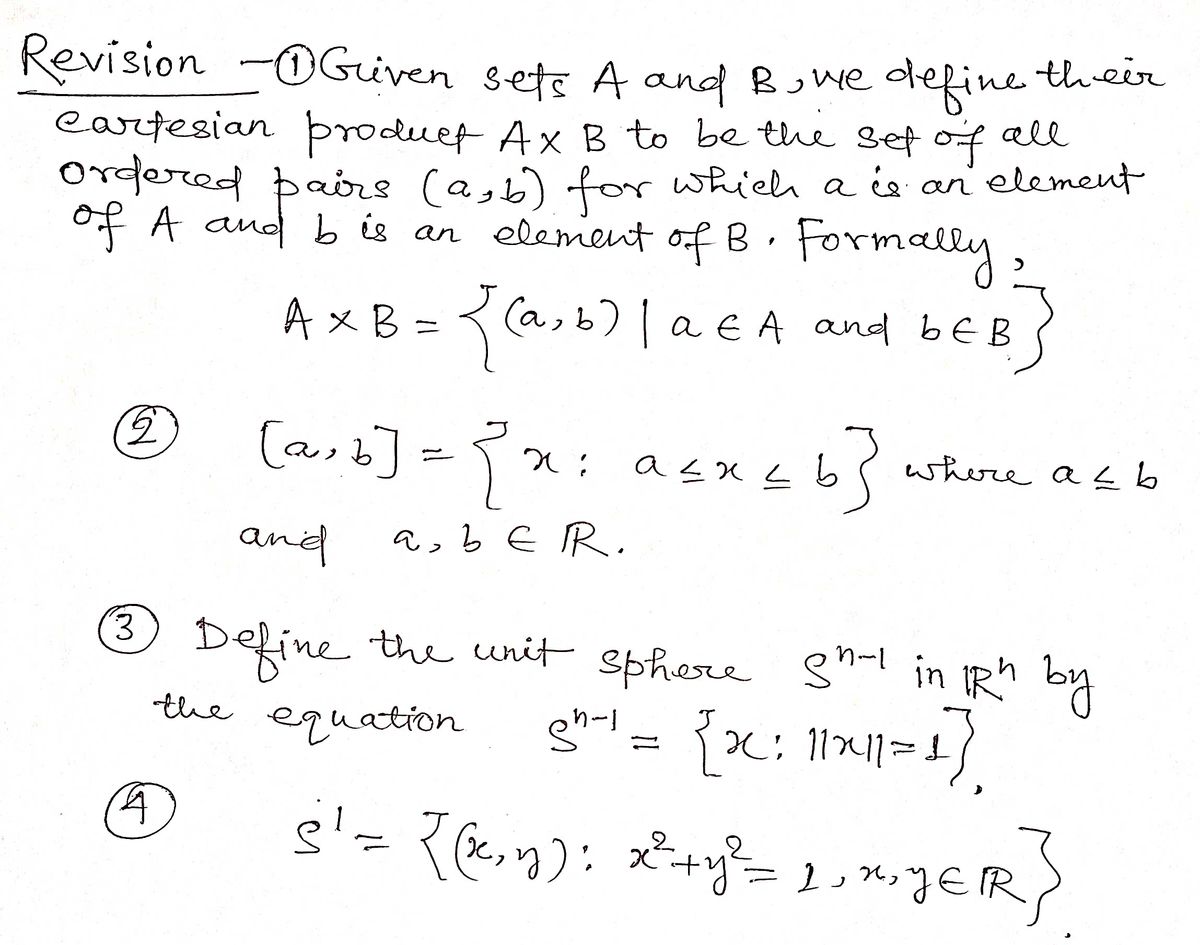 Revision - ① Given sets A and B, we define their
cartesian product A × B to be the set of all
ordered pairs (a, b) for which a is an element
of A and b is an element of B. Formally,
A × B = {(a, b) | a ∈ A and b ∈ B}
② [a, b] = {x : a ≤ x ≤ b} where a ≤ b
and a, b ∈ ℝ.
③ Define the unit sphere Sⁿ⁻¹ in ℝⁿ by
the equation Sⁿ⁻¹ = {x : ||x|| = 1},
④ S¹ = {(x, y) : x² + y² = 1, x, y ∈ ℝ}.